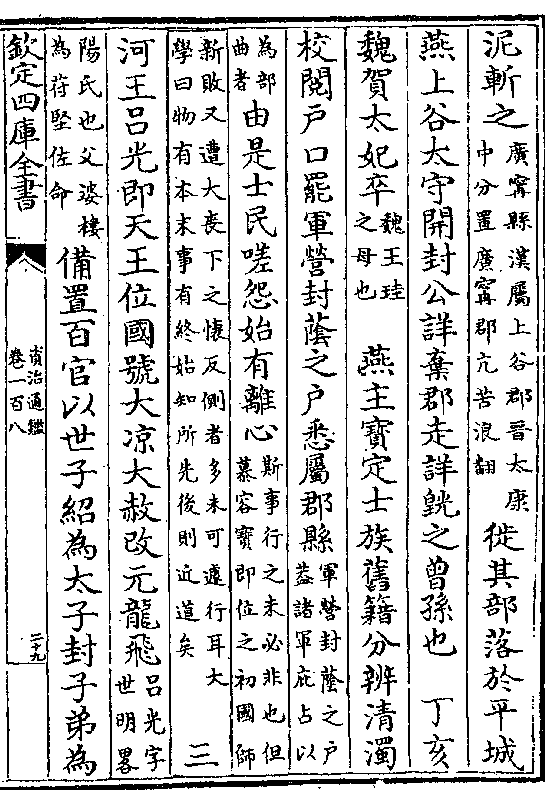 泥斬之廣甯縣漢屬上谷郡晉太康中分置廣甯郡亢苦浪翻徙其部落於平城
燕上谷太守開封公詳棄郡走詳皝之曾孫也　丁亥
魏賀太妃卒魏王珪之母也　燕主寶定士族舊籍分辨清濁
校閱戶口罷軍營封蔭之戶悉屬郡縣軍營封蔭之戶蓋諸軍庇占以
為部曲者由是士民嗟怨始有離心斯事行之未必非也但慕容寶即位之初國師
新敗又遭大喪下之懷反側者多未可遽行耳大學曰物有本末事有終始知所先後則近道矣　三
河王呂光即天王位國號大涼大赦改元龍飛呂光字世明畧
陽氏也父婆樓為苻堅佐命備置百官以世子紹為太子封子弟為
欽定四庫全書　資治通鑑卷一百八　二十九